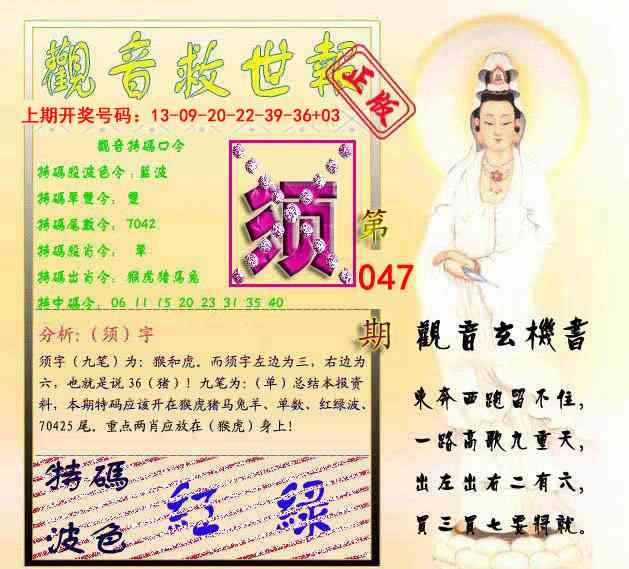 觀音救世報
正版
上期开奖号码：13-09-20-22-39-36+03
觀音特碼口令
特碼段波色令：藍波
特碼單雙令： 雙
特碼尾數令： 7042
特碼段肖令： 單
特碼出肖令： 猴虎猪馬兔
特中碼令： 06 11 15 20 23 31 35 40
须
第
047
期
分析：（须）字
须字（九笔）为：猴和虎。而须字左边为三，右边为
六，也就是说 36（猪）！九笔为：（单）总结本报资
料，本期特码应该开在猴虎猪马兔羊、单数、红绿波、
70425 尾。重点两肖应放在（猴虎）身上！
特碼
波色
紅 綠
觀音玄機書
東奔西跑留不住，
一路高歌九重天，
出左出右二有六，
買三買七要將就。